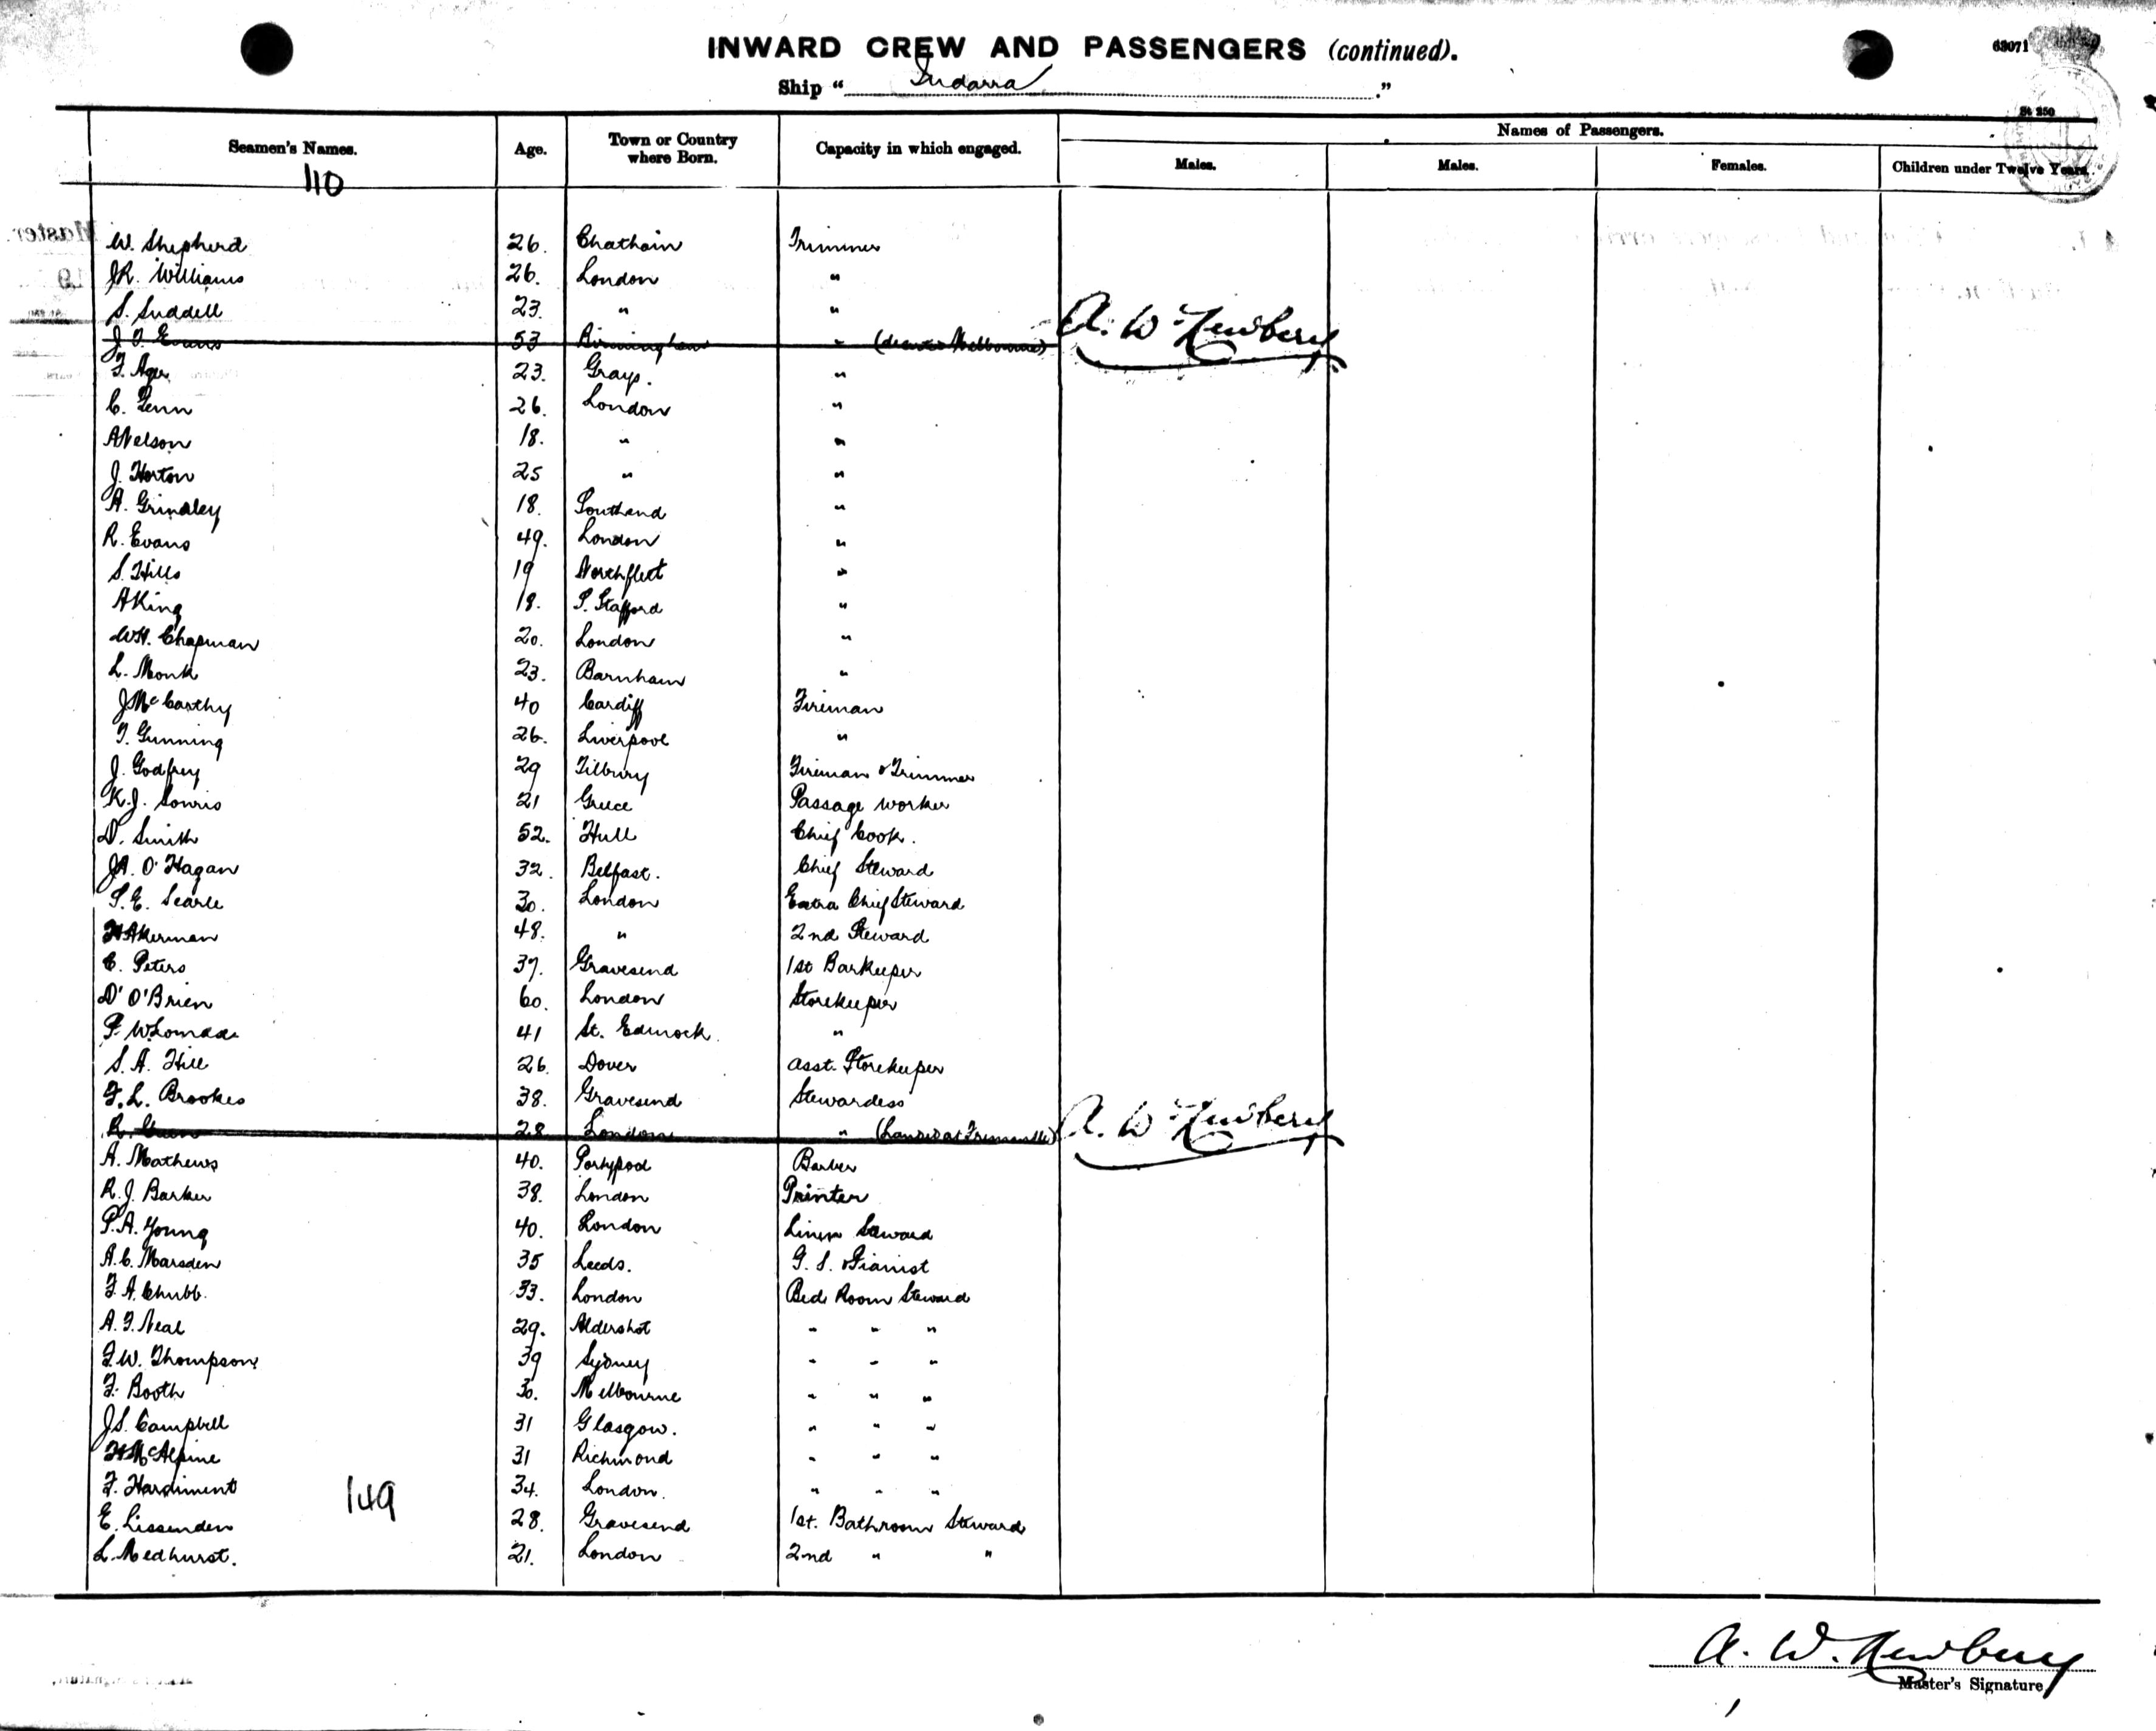 INWARD CREW AND PASSENGERS (continued).
63071
Ship " Indarra ."
St 250
Seamen's Names. Age. Town or Country where Born. Capacity in which engaged. Names of Passengers.
Males. Males. Females. Children under Twelve Years.
110
W. Shepherd 26. Chatham Trimmer
J.R. Williams 26. London "
S. Suddell 23. " "
J. Evans 53 Birmingham " (deserted Melbourne) A. W. Newbery
F. Ager 23. Grays. "
C. Fenn 26. London "
A Nelson 18. " "
J. Horton 25 " "
A. Grindley 18. Southend "
R. Evans 49. London "
S. Hills 19 Northfleet "
A King 18. S. Stafford "
W.H. Chapman 20. London "
L. Monk 23. Barnham "
J McCarthy 40 Cardiff Fireman
T. Gunning 26. Liverpool "
J. Godfrey 29 Tilbury Fireman & Trimmer
K.J. 21 Greece Passage worker
D. Smith 52. Hull Chief Cook.
J.A. O'Hagan 32. Belfast. Chief Steward
S.E. Searle 30. London Extra Chief Steward
H Akerman 48. " 2nd Steward
C. Peters 37. Gravesend 1st Barkeeper
D' O'Brien 60. London Storekeeper
P. W. 41 St. "
S. A. Hill 26. Dover asst. Storekeeper
F. L. Brookes 38. Gravesend Stewardess
R. 28 London " (Landed at Fremantle) A. W. Newbery
A. Mathews 40. Barber
R. J. Barker 38. London Printer
P.A. Young 40. London Linen Steward
A.C. Marsden 35 Leeds. G. S. & Pianist
F. A. Chubb. 33. London Bed Room Steward
A. F. Neal 29. Aldershot " " "
F.W. Thompson 39 Sydney " " "
F. Booth 30. Melbourne " " "
J.S. Campbell 31 Glasgow. " " "
H McAlpine 31 Richmond " " "
F. Hardiment 34. London. " " "
149
E. Lissenden 28. Gravesend 1st. Bathroom Steward
L. Medhurst. 21. London 2nd " "
A. W. Newbery
Master's Signature